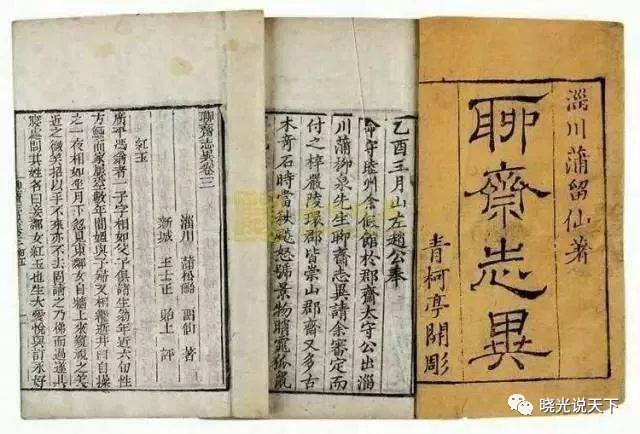 淄川蒲留仙著
聊齋志異
青柯亭開彫
乙酉三月山左趙公奉
命守睦州余假館於郡齋太守公出淄
川蒲柳泉先生聊齋志異請余審定而
付之梓嚴陵環郡皆崇山郡齋又多古
木奇石時當秋飇怒號景物睄窱狐鼠
聊齋志異卷三
淄川 蒲松齡 留仙 著
新城 王士正 貽上 評
紅玉
廣平馮翁者一子字相如父子俱諸生翁年近六旬性
方鯁而家屢空數年間媼與子婦又相繼逝井臼自操
之一夜相如坐月下忽見東鄰女自牆上來窺視之美
近之微笑招以手不來亦不去固請之乃梯而過遂共
寢處問其姓名曰妾鄰女紅玉也生大愛悅與訂永好
晓光说天下